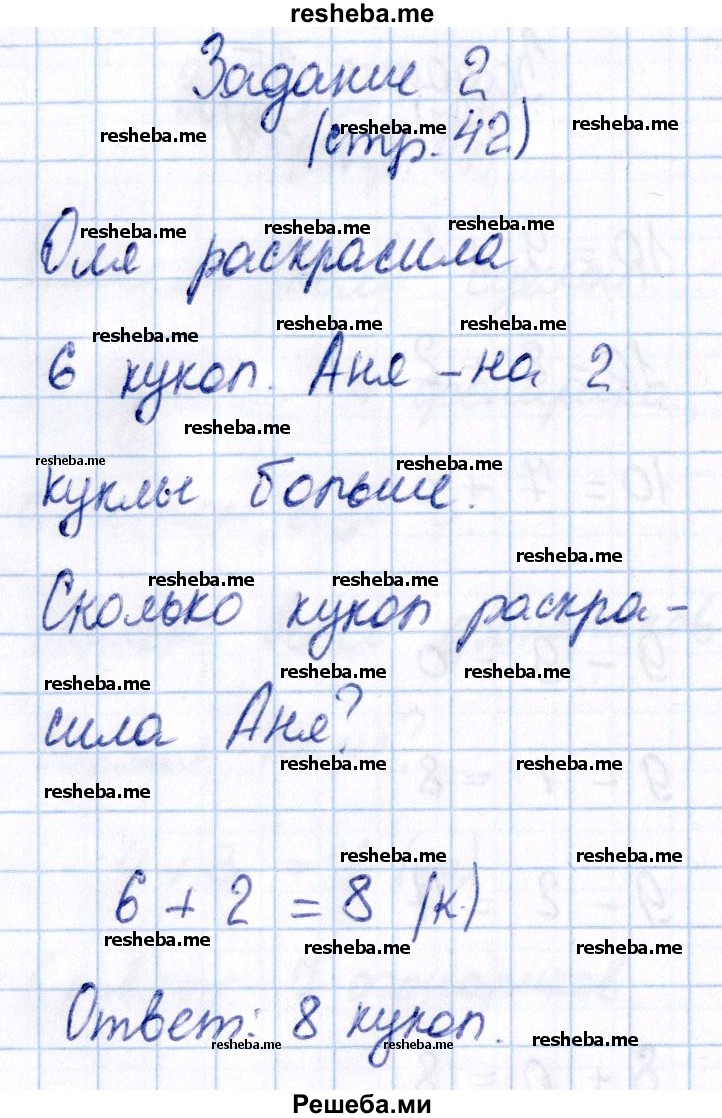 resheba.me
Задание 2
resheba.me resheba.me resheba.me
(стр. 42)
resheba.me resheba.me resheba.me
Оля раскрасила
resheba.me resheba.me resheba.me
6 кукол. Аня - на 2
resheba.me
resheba.me resheba.me
куклы больше.
resheba.me
resheba.me resheba.me
Сколько кукол раскра-
resheba.me resheba.me resheba.me
сила Аня?
resheba.me resheba.me
resheba.me
resheba.me resheba.me
6 + 2 = 8 (к.)
resheba.me resheba.me resheba.me
Ответ: 8 кукол.
resheba.me resheba.me resheba.me
Решеба.ми